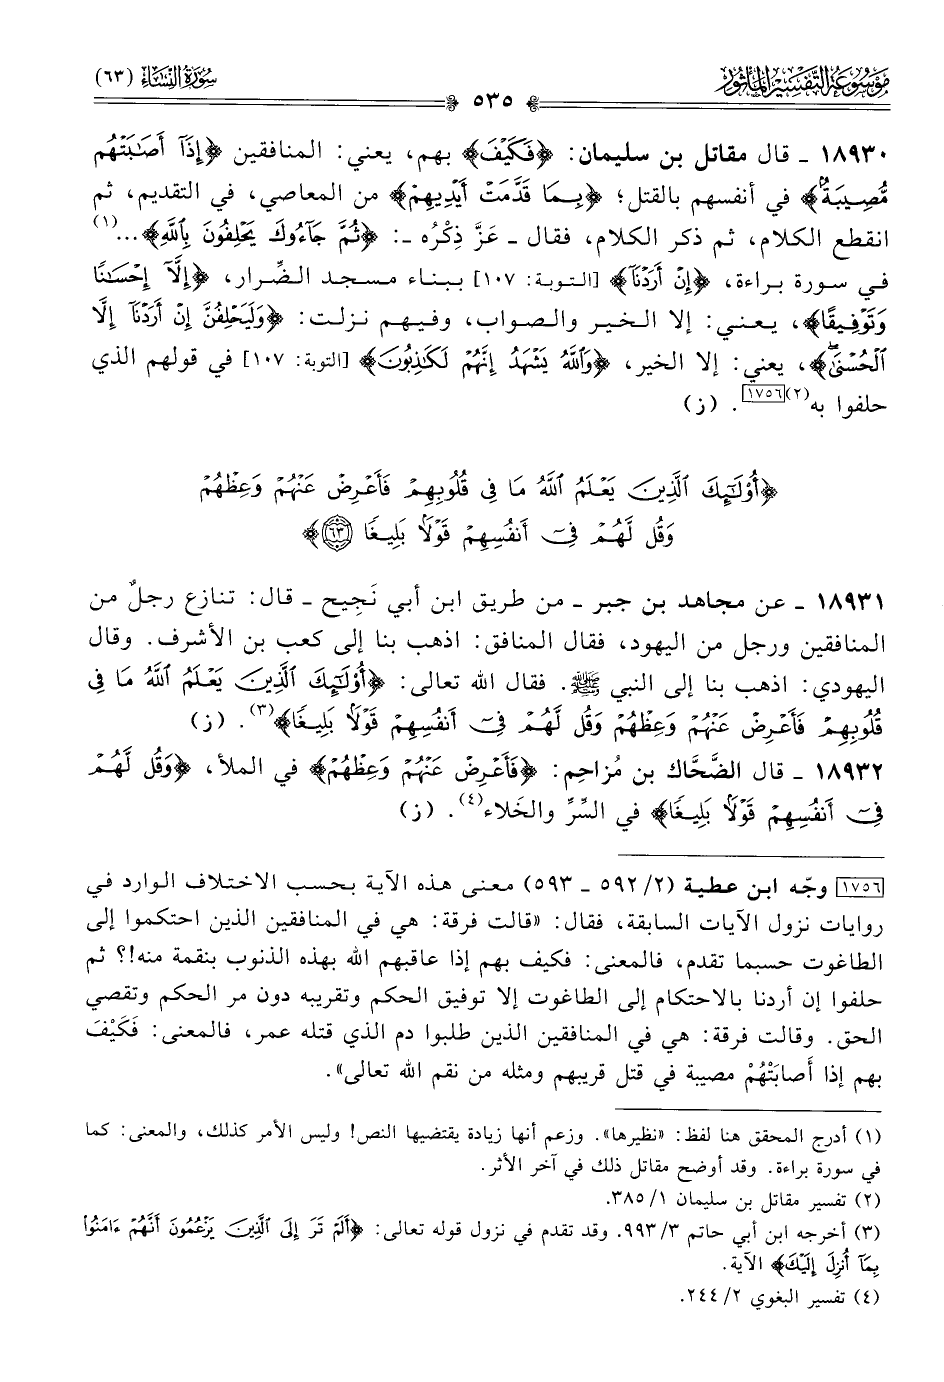 مَوْسُوعَةُ التَّفْسِيْرِ المَأْثُور
سُورَةُ النِّسَاء (٦٣)
٥٣٥
١٨٩٣٠ ـ قال مقاتل بن سليمان: ﴿فَكَيْفَ﴾ بهم، يعني: المنافقين ﴿إِذَآ أَصَٰبَتْهُم
مُّصِيبَةٌۢ﴾ في أنفسهم بالقتل؛ ﴿بِمَا قَدَّمَتْ أَيْدِيهِمْ﴾ من المعاصي، في التقديم، ثم
انقطع الكلام، ثم ذكر الكلام، فقال ـ عَزَّ ذِكْرُه ـ: ﴿ثُمَّ جَآءُوكَ يَحْلِفُونَ بِٱللَّهِ﴾...(١)
في سورة براءة، ﴿إِنْ أَرَدْنَآ﴾ [التوبة: ١٠٧] ببناء مسجد الضِّرار، ﴿إِلَّآ إِحْسَٰنًا
وَتَوْفِيقًا﴾، يعني: إلا الخير والصواب، وفيهم نزلت: ﴿وَلَيَحْلِفُنَّ إِنْ أَرَدْنَآ إِلَّا
ٱلْحُسْنَىٰۖ﴾، يعني: إلا الخير، ﴿وَٱللَّهُ يَشْهَدُ إِنَّهُمْ لَكَٰذِبُونَ﴾ [التوبة: ١٠٧] في قولهم الذي
حلفوا به(٢)[١٧٥٦]. (ز)
﴿أُوْلَٰٓئِكَ ٱلَّذِينَ يَعْلَمُ ٱللَّهُ مَا فِى قُلُوبِهِمْ فَأَعْرِضْ عَنْهُمْ وَعِظْهُمْ
وَقُل لَّهُمْ فِىٓ أَنفُسِهِمْ قَوْلًۢا بَلِيغًا ٦٣﴾
١٨٩٣١ ـ عن مجاهد بن جبر ـ من طريق ابن أبي نَجِيح ـ قال: تنازع رجلٌ من
المنافقين ورجل من اليهود، فقال المنافق: اذهب بنا إلى كعب بن الأشرف. وقال
اليهودي: اذهب بنا إلى النبي ﷺ. فقال الله تعالى: ﴿أُوْلَٰٓئِكَ ٱلَّذِينَ يَعْلَمُ ٱللَّهُ مَا فِى
قُلُوبِهِمْ فَأَعْرِضْ عَنْهُمْ وَعِظْهُمْ وَقُل لَّهُمْ فِىٓ أَنفُسِهِمْ قَوْلًۢا بَلِيغًا﴾(٣). (ز)
١٨٩٣٢ ـ قال الضَّحَّاك بن مُزاحِم: ﴿فَأَعْرِضْ عَنْهُمْ وَعِظْهُمْ﴾ في الملأ، ﴿وَقُل لَّهُمْ
فِىٓ أَنفُسِهِمْ قَوْلًۢا بَلِيغًا﴾ في السِّرِّ والخَلاء(٤). (ز)
[١٧٥٦] وجّه ابن عطية (٢/ ٥٩٢ ـ ٥٩٣) معنى هذه الآية بحسب الاختلاف الوارد في
روايات نزول الآيات السابقة، فقال: «قالت فرقة: هي في المنافقين الذين احتكموا إلى
الطاغوت حسبما تقدم، فالمعنى: فكيف بهم إذا عاقبهم الله بهذه الذنوب بنقمة منه!؟ ثم
حلفوا إن أردنا بالاحتكام إلى الطاغوت إلا توفيق الحكم وتقريبه دون مر الحكم وتقصي
الحق. وقالت فرقة: هي في المنافقين الذين طلبوا دم الذي قتله عمر، فالمعنى: فَكَيْفَ
بهم إذا أَصابَتْهُمْ مصيبة في قتل قريبهم ومثله من نقم الله تعالى».
(١) أدرج المحقق هنا لفظ: «نظيرها». وزعم أنها زيادة يقتضيها النص! وليس الأمر كذلك، والمعنى: كما
في سورة براءة. وقد أوضح مقاتل ذلك في آخر الأثر.
(٢) تفسير مقاتل بن سليمان ١/ ٣٨٥.
(٣) أخرجه ابن أبي حاتم ٣/ ٩٩٣. وقد تقدم في نزول قوله تعالى: ﴿أَلَمْ تَرَ إِلَى ٱلَّذِينَ يَزْعُمُونَ أَنَّهُمْ ءَامَنُوا۟
بِمَآ أُنزِلَ إِلَيْكَ﴾ الآية.
(٤) تفسير البغوي ٢/ ٢٤٤.